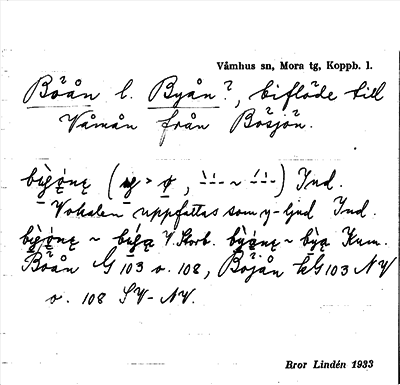 Våmhus sn, Mora tg, Koppb. l.
Böån l. Byån?, biflöde till
Våmån från Bösjön.
Ind.
Vokalen uppfattas som y-ljud Ind.
~ V. Storb. ~ Kum.
Böån G 103 o. 108, Böjån hG 103 NV
o. 108 SV-NV.
Bror Lindén 1933